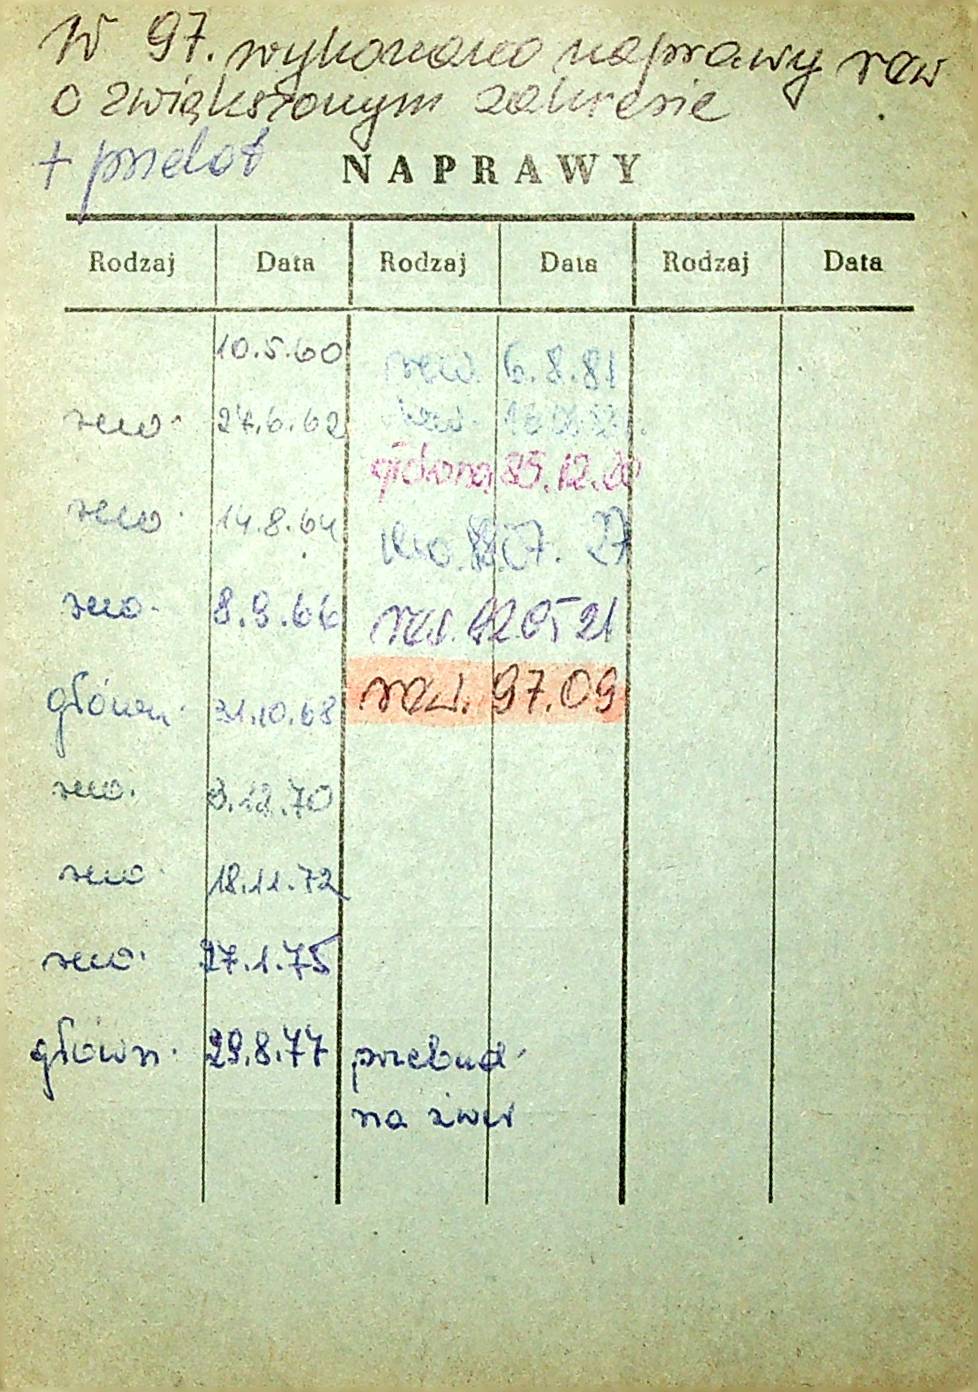 W 97. wykonano naprawy rew
o zwiększonym zakresie
+ przelot
NAPRAWY
Rodzaj Data Rodzaj Data Rodzaj Data
10.5.60 rew. 6.8.81
rew. 27.6.62 rew.
główna 85.12.20
rew. 14.8.64 07. 27
rew. 8.9.66 rew. 92 05 21
główn. 31.10.68 rew. 97.09
rew. 3.12.70
rew. 18.11.72
rew. 27.1.75
główn. 29.8.77 przebud.
na żwir